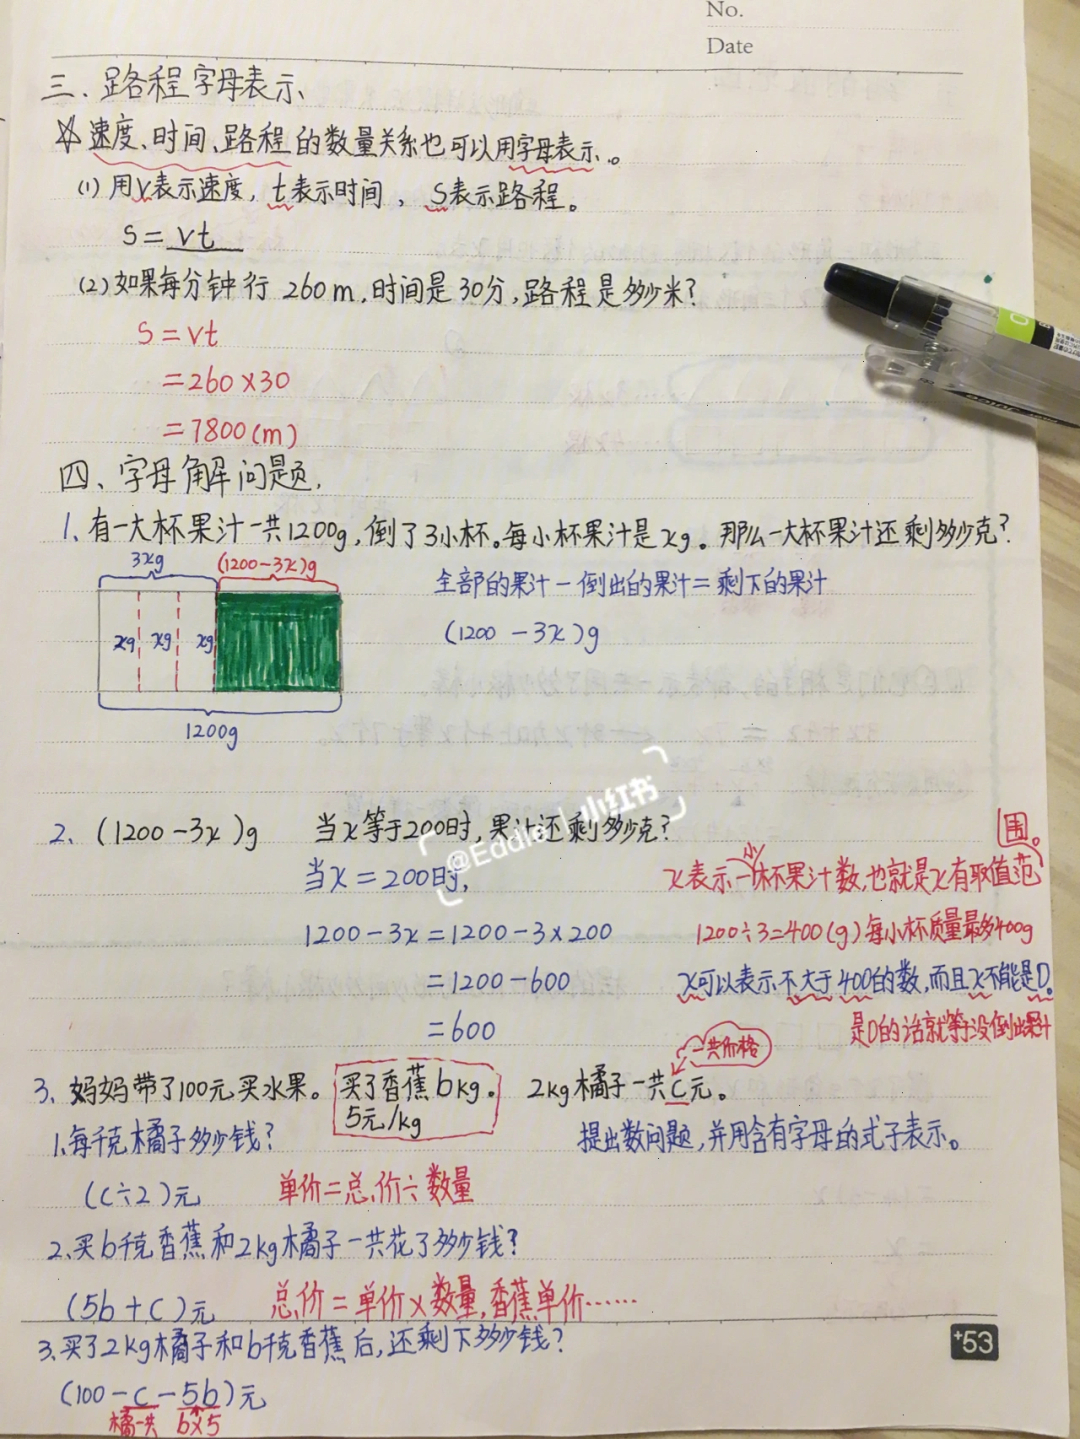 No.
Date
三、路程字母表示
☆速度、时间、路程的数量关系也可以用字母表示。
(1) 用v表示速度, t表示时间, S表示路程。
S=vt
(2)如果每分钟行 260m,时间是30分,路程是多少米?
S=vt
=260×30
=7800(m)
四、字母解问题.
1、有一大杯果汁一共1200g,倒了3小杯。每小杯果汁是xg。那么一大杯果汁还剩多少克?
3xg (1200-3x)g
全部的果汁-倒出的果汁=剩下的果汁
xg xg xg
(1200-3x)g
1200g
@Eddie | 小红书
2、(1200-3x)g 当x等于200时,果汁还剩多少克?
当x=200时,
1200-3x=1200-3×200
=1200-600
=600
x表示一小杯果汁数,也就是x有取值范围。
1200÷3=400(g)每小杯质量最多400g
x可以表示不大于400的数,而且x不能是0。
是0的话就等于没倒出果汁
一共价格
3、妈妈带了100元买水果。买了香蕉bkg。 2kg橘子一共c元。
5元/kg
提出数问题,并用含有字母的式子表示。
1、每千克橘子多少钱?
(c÷2)元 单价=总价÷数量
2、买b千克香蕉和2kg橘子一共花了多少钱?
(5b+c)元 总价=单价×数量,香蕉单价……
3、买了2kg橘子和b千克香蕉后,还剩下多少钱?
(100-c-5b)元
橘一共 b×5
+53